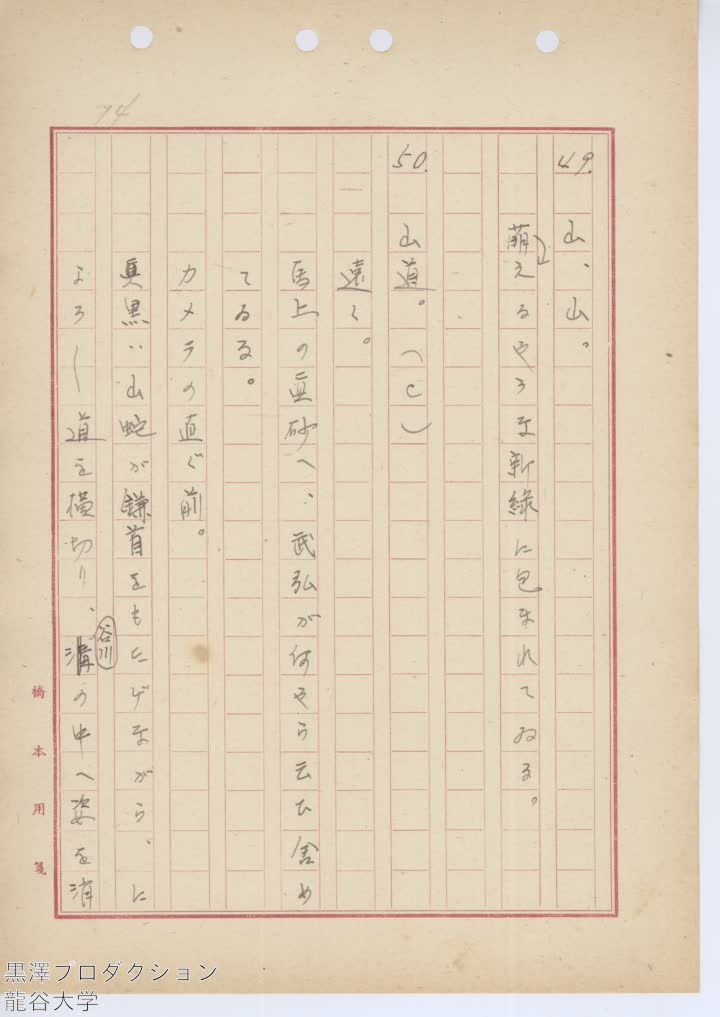 74
49. 山、山。
萌えるやうな新緑に包まれてゐる。
50. 山道。(C)
遠く。
馬上の真砂へ、武弘が何やら云ひ含め
てゐる。
カメラの直ぐ前。
真黒い山蛇が鎌首をもたげながら、に
よろし道を横切り、溝の中へ姿を消
谷川
橋本用箋
黒澤プロダクション
龍谷大学